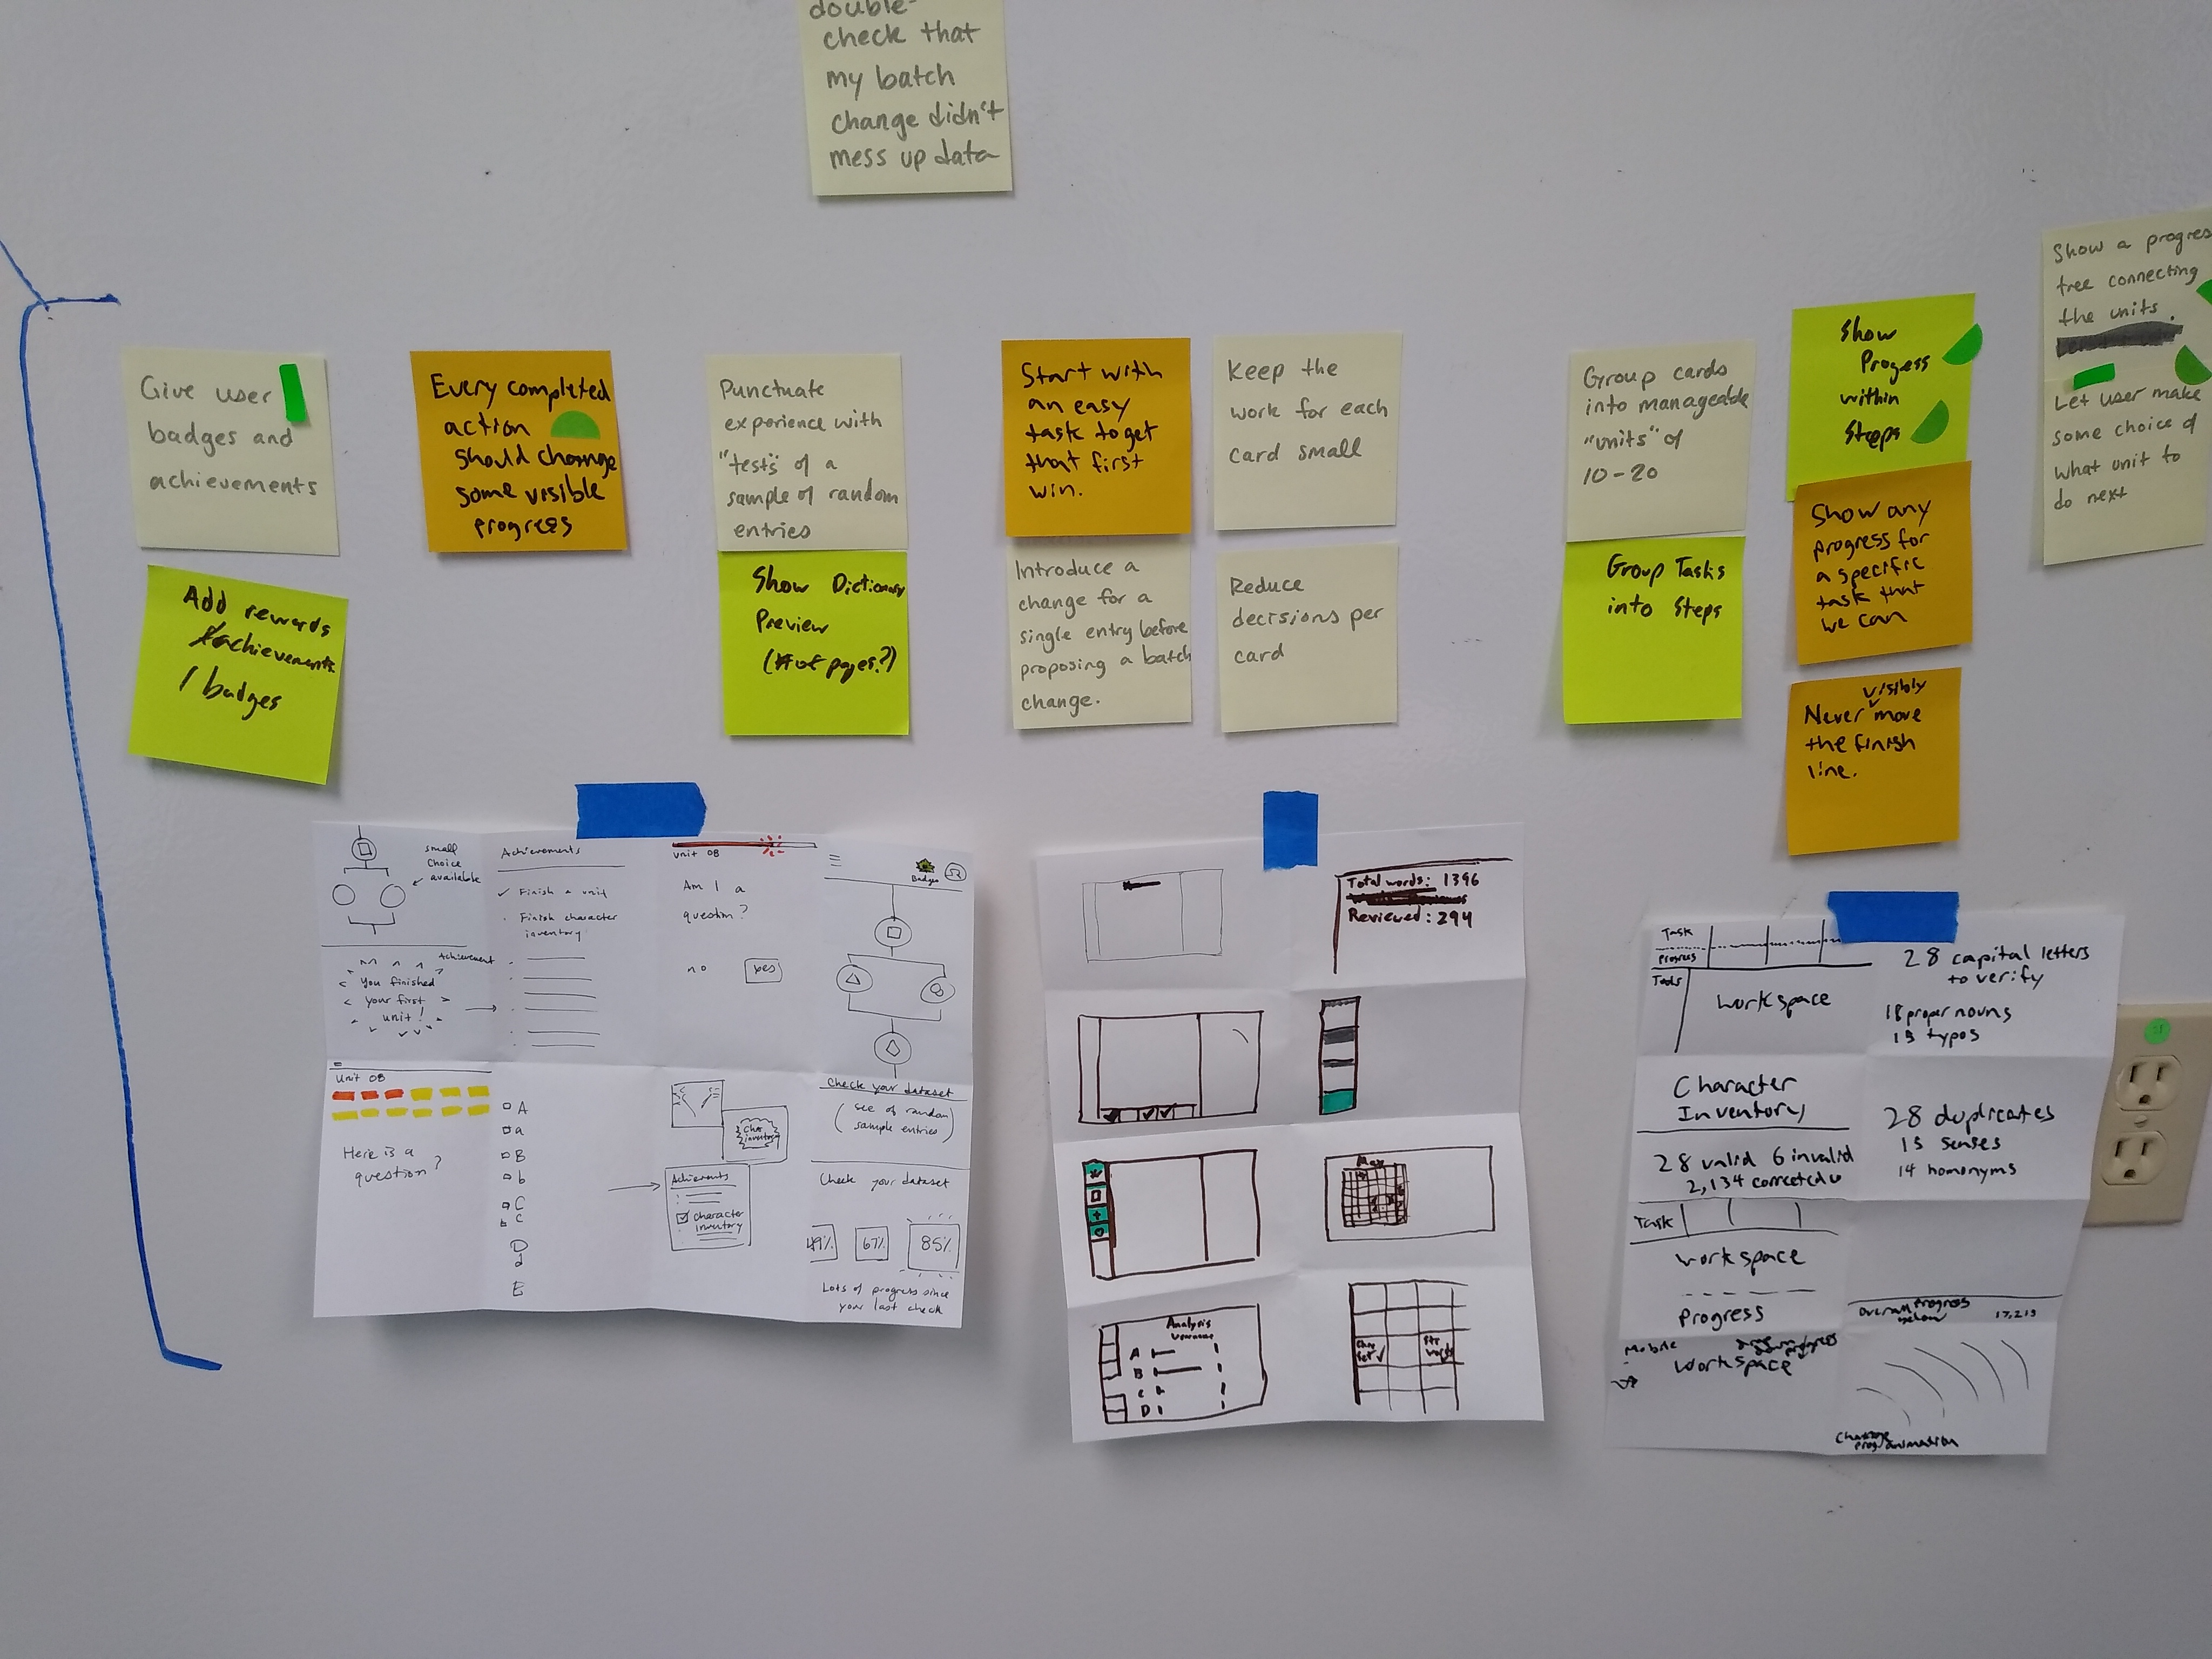 double-
check that
my batch
change didn't
mess up data
Give user
badges and
achievements
Add rewards
achievements
/ badges
Every completed
action
should change
some visible
progress
Punctuate
experience with
"tests" of a
sample of random
entries
Show Dictionary
Preview
(# of pages?)
Start with
an easy
task to get
that first
win.
Introduce a
change for a
single entry before
proposing a batch
change.
Keep the
work for each
card small
Reduce
decisions per
card
Group cards
into manageable
"units" of
10-20
Group Tasks
into Steps
Show
Progess
within
Steps
Show any
progress for
a specific
task that
we can
visibly
Never move
the finish
line.
Show a progres
tree connecting
the units.
Let user make
some choice of
what unit to
do next
small
choice
available
Achievement
You finished
your first
unit!
Achievements
✓ Finish a unit
Finish character
inventory
Unit 08
Am I a
question?
no
yes
Badges
52
Unit 08
Here is a
question?
A
a
B
b
C
c
D
d
E
Char
inventory
Achievements
character
inventory
Check your dataset
(see of random
sample entries)
Check your dataset
49%
67%
85%
Lots of progress since
your last check
Total words: 1396
Reviewed: 294
May
Analysis
A
B
C
D
Task
Progress
Tools
Workspace
28 capital letters
to verify
18 proper nouns
15 typos
Character
Inventory
28 valid 6 invalid
2,134 corrected
28 duplicates
15 senses
14 homonyms
Task
Workspace
Progress
Mobile
Workspace
Overall Progress
below
17,213
Change
prog animation